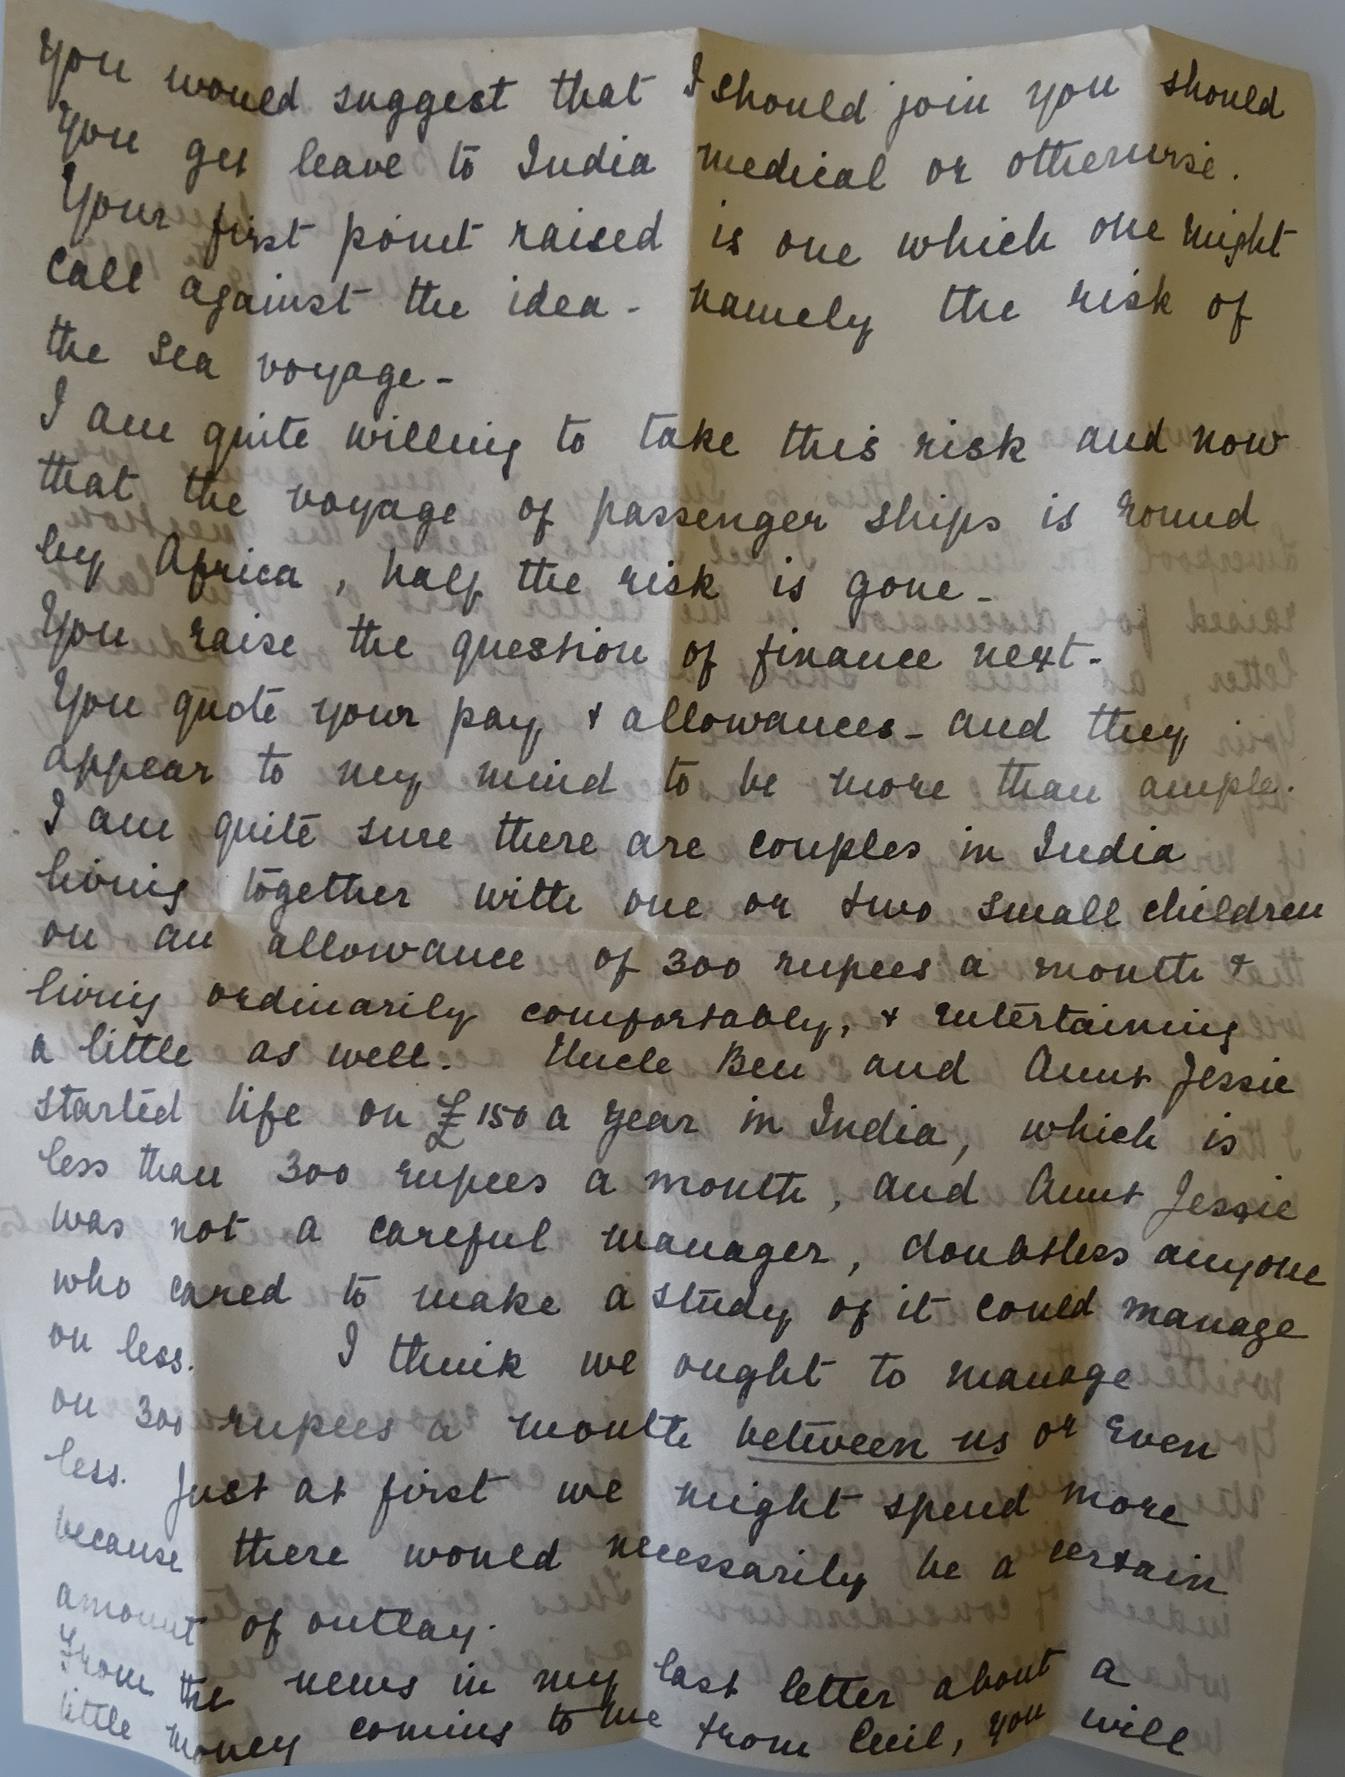 you would suggest that I should join you should
you get leave to India medical or otherwise.
Your first point raised is one which one might
call against the idea - namely the risk of
the sea voyage -
I am quite willing to take this risk and now
that the voyage of passenger ships is round
by Africa, half the risk is gone -
You raise the question of finance next -
You quote your pay & allowances - and they
appear to my mind to be more than ample.
I am quite sure there are couples in India
living together with one or two small children
on an allowance of 300 rupees a month &
living ordinarily comfortably, & entertaining
a little as well. Uncle Ben and Aunt Jessie
started life on £150 a year in India, which is
less than 300 rupees a month, and Aunt Jessie
was not a careful manager, doubtless anyone
who cared to make a study of it could manage
on less. I think we ought to manage
on 300 rupees a month between us or even
less. Just at first we might spend more
because there would necessarily be a certain
amount of outlay.
From the news in my last letter about a
little money coming to me from Cecil, you will